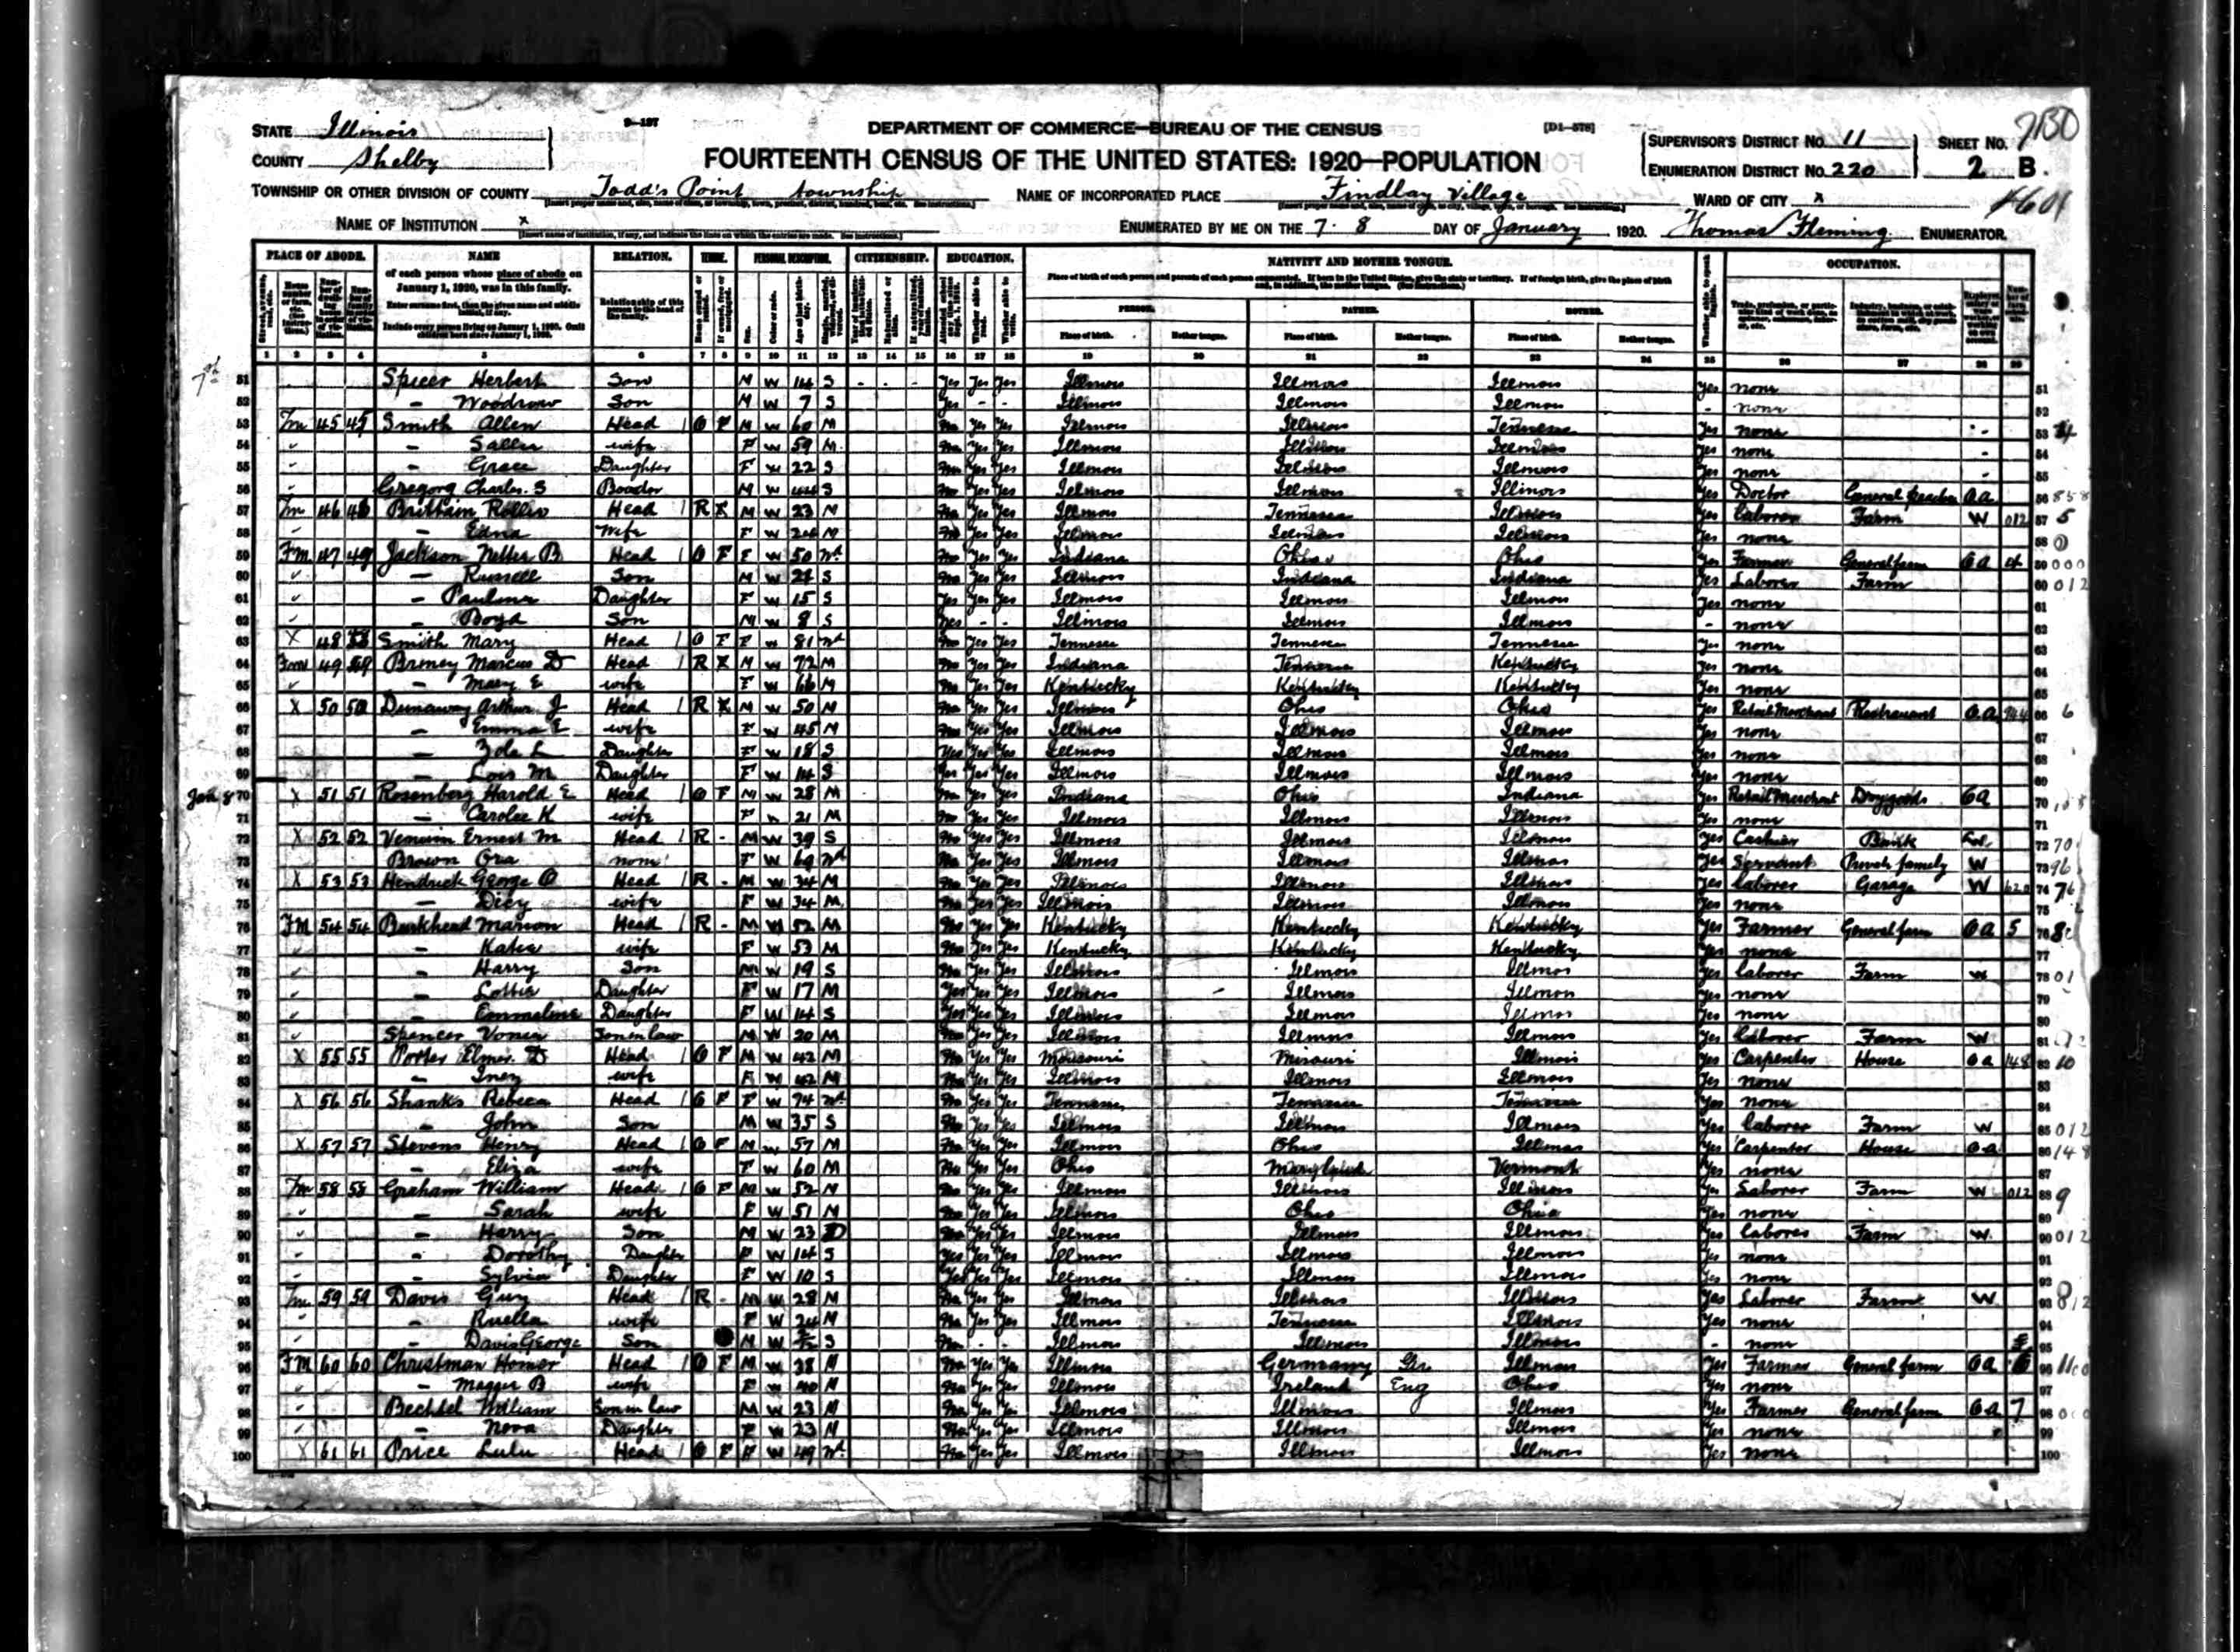 9-197
[D1-578]
DEPARTMENT OF COMMERCE—BUREAU OF THE CENSUS
FOURTEENTH CENSUS OF THE UNITED STATES: 1920—POPULATION
STATE Illinois
COUNTY Shelby
SUPERVISOR'S DISTRICT No. 11
ENUMERATION DISTRICT No. 220
SHEET No. 2 B.
TOWNSHIP OR OTHER DIVISION OF COUNTY Todd's Point township
NAME OF INCORPORATED PLACE Findlay Village
WARD OF CITY x
NAME OF INSTITUTION x
ENUMERATED BY ME ON THE 7. 8 DAY OF January, 1920. Thomas Fleming ENUMERATOR.
PLACE OF ABODE. NAME RELATION. TENURE. PERSONAL DESCRIPTION. CITIZENSHIP. EDUCATION. NATIVITY AND MOTHER TONGUE. OCCUPATION.
of each person whose place of abode on January 1, 1920, was in this family.
Enter surname first, then the given name and middle initial, if any.
Include every person living on January 1, 1920. Omit children born since January 1, 1920.
Relationship of this person to the head of the family.
PERSON. FATHER. MOTHER.
Place of birth. Mother tongue. Place of birth. Mother tongue. Place of birth. Mother tongue.
1 2 3 4 5 6 7 8 9 10 11 12 13 14 15 16 17 18 19 20 21 22 23 24 25 26 27 28 29
51 Spicer Herbert Son M W 14 S Yes Yes Yes Illinois Illinois Illinois Yes none 51
52 — Woodrow Son M W 7 S Yes - - Illinois Illinois Illinois - none 52
53 Fm 45 Smith Allen Head O F M W 60 M No Yes Yes Illinois Illinois Tennessee Yes none 53
54 — Sallie wife F W 59 M No Yes Yes Illinois Illinois Illinois Yes none 54
55 — Grace Daughter F W 22 S No Yes Yes Illinois Illinois Illinois Yes none 55
56 Gregory Charles. S Boader M W 44 S No Yes Yes Illinois Illinois Illinois Yes Doctor General OA 56
57 Fm 46 Brittain Head R X M W 23 M No Yes Yes Illinois Tennessee Illinois Yes Laborer Farm W 57
58 — Edna Wife F W 24 M No Yes Yes Illinois Illinois Illinois Yes none 58
59 FM 47 49 Jackson Nettie B Head O F F W 50 Wd No Yes Yes Indiana Ohio Ohio Yes Farmer General farm OA 4 59
60 — Russell Son M W 21 S No Yes Yes Illinois Indiana Indiana Yes Laborer Farm 60
61 — Pauline Daughter F W 15 S Yes Yes Yes Illinois Illinois Illinois Yes none 61
62 — Boyd Son M W 8 S Yes - - Illinois Illinois Illinois - none 62
63 X 48 Smith Mary Head O F F W 81 Wd No Yes Yes Tennessee Tennessee Tennessee Yes none 63
64 Fm 49 Briney Marcus D Head R X M W 72 M No Yes Yes Indiana Tennessee Kentucky Yes none 64
65 — Mary E wife F W 66 M No Yes Yes Kentucky Kentucky Kentucky Yes none 65
66 X 50 50 Dunaway Arthur J Head R X M W 50 M No Yes Yes Illinois Ohio Ohio Yes Retail Merchant Restraurant OA 66
67 — Emma E wife F W 45 M No Yes Yes Illinois Illinois Illinois Yes none 67
68 — Zola L Daughter F W 18 S Yes Yes Yes Illinois Illinois Illinois Yes none 68
69 — Lois M Daughter F W 14 S Yes Yes Yes Illinois Illinois Illinois Yes none 69
Jan 8 70 X 51 51 Rosenberg Harold E Head O F M W 28 M No Yes Yes Indiana Ohio Indiana Yes Retail Merchant Drygoods OA 70
71 — Carolee K wife F W 21 M No Yes Yes Illinois Illinois Illinois Yes none 71
72 X 52 52 Ernest M Head R - M W 39 S No Yes Yes Illinois Illinois Illinois Yes Cashier Bank 72
73 Brown Ora none F W 69 Wd No Yes Yes Illinois Illinois Illinois Yes Servant Private family W 73
74 X 53 53 Hendrick George O Head R - M W 34 M No Yes Yes Illinois Illinois Illinois Yes Laborer Garage W 74
75 — Dicy wife F W 34 M No Yes Yes Illinois Illinois Illinois Yes none 75
76 FM 54 54 Burkhead Marion Head R - M W 52 M No Yes Yes Kentucky Kentucky Kentucky Yes Farmer General farm OA 5 76
77 — Katie wife F W 53 M No Yes Yes Kentucky Kentucky Kentucky Yes none 77
78 — Harry Son M W 19 S No Yes Yes Illinois Illinois Illinois Yes Laborer Farm W 78
79 — Lottie Daughter F W 17 M Yes Yes Yes Illinois Illinois Illinois Yes none 79
80 — Emmaline Daughter F W 14 S Yes Yes Yes Illinois Illinois Illinois Yes none 80
81 Spencer Son in law M W 20 M No Yes Yes Illinois Illinois Illinois Yes Laborer Farm W 81
82 X 55 55 Porter Elmer. D Head O F M W 42 M No Yes Yes Missouri Missouri Illinois Yes Carpenter House OA 82
83 — Inez wife F W 42 M No Yes Yes Illinois Illinois Illinois Yes none 83
84 X 56 56 Shanks Rebeca Head O F F W 74 Wd No Yes Yes Tennessee Tennessee Tennessee Yes none 84
85 — John Son M W 35 S No Yes Yes Illinois Illinois Illinois Yes Laborer Farm W 85
86 X 57 57 Stevens Henry Head O F M W 57 M No Yes Yes Illinois Ohio Illinois Yes Carpenter House OA 86
87 — Eliza wife F W 60 M No Yes Yes Ohio Maryland Vermont Yes none 87
88 Fm 58 58 Graham William Head O F M W 52 M No Yes Yes Illinois Illinois Illinois Yes Laborer Farm W 88
89 — Sarah wife F W 51 M No Yes Yes Illinois Ohio Ohio Yes none 89
90 — Harry Son M W 23 D No Yes Yes Illinois Illinois Illinois Yes Laborer Farm W 90
91 — Dorothy Daughter F W 14 S Yes Yes Yes Illinois Illinois Illinois Yes none 91
92 — Sylvia Daughter F W 10 S Yes Yes Yes Illinois Illinois Illinois Yes none 92
93 Fm 59 59 Davis Guy Head R - M W 28 M No Yes Yes Illinois Illinois Illinois Yes Laborer Farm W 93
94 — Ruella wife F W 24 M No Yes Yes Illinois Tennessee Illinois Yes none 94
95 — Davis George Son M W S No - - Illinois Illinois Illinois - none 95
96 FM 60 60 Christman Homer Head O F M W 38 M No Yes Yes Illinois Germany Ger Illinois Yes Farmer General farm OA 6 96
97 — Maggie B wife F W 40 M No Yes Yes Illinois Ireland Eng Ohio Yes none 97
98 Bechtel William Son in law M W 23 M No Yes Yes Illinois Illinois Illinois Yes Farmer General farm OA 7 98
99 — Nova Daughter F W 23 M No Yes Yes Illinois Illinois Illinois Yes none 99
100 X 61 61 Price Lulu Head O F F W 49 Wd No Yes Yes Illinois Illinois Illinois Yes none 100